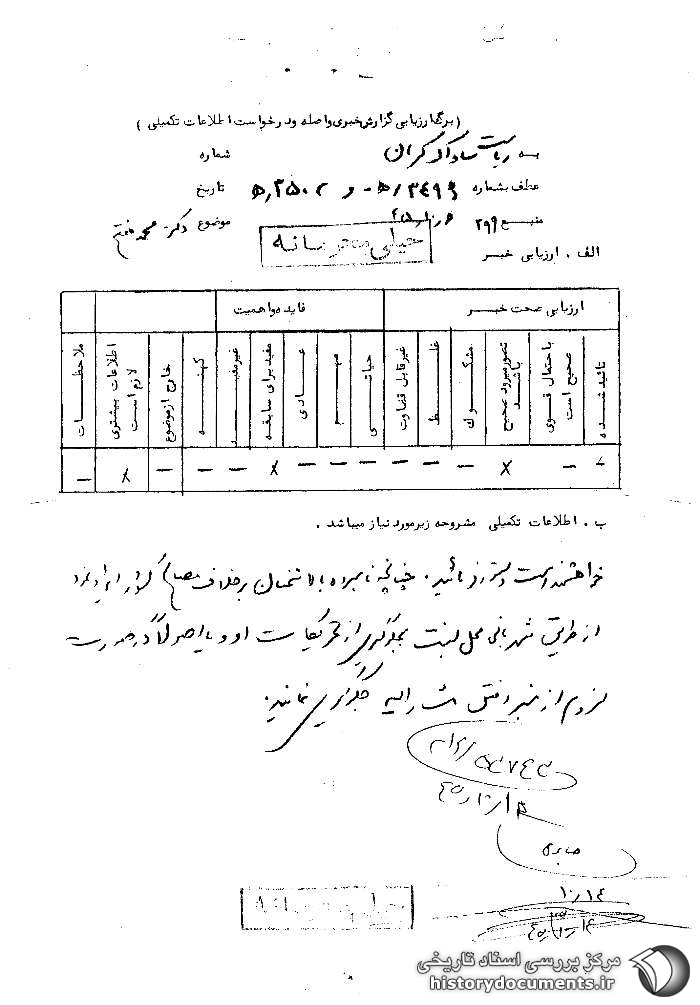 (برگ ارزیابی گزارش خبری واصله و درخواست اطلاعات تکمیلی)
به ریاست ساواک کرمان شماره
عطف بشماره ۵/۳۴۹۹- و ۵/۳۵۰۲ تاریخ
منبع ۲۹۹ موضوع دکتر محمد مفتح
خیلی محرمانه
الف. ارزیابی خبر
ارزیابی صحت خبر فایده و اهمیت
تائید شده باحتمال قوی صحیح است تصور میرود صحیح باشد مشکوک غلط غیرقابل قضاوت حیاتی مهم عادی مفید برای سابقه غیرمفید کهنه خارج از موضوع اطلاعات بیشتری لازم است ملاحظات
- - x - - - - - - x - - - x -
ب. اطلاعات تکمیلی مشروحه زیر مورد نیاز میباشد.
خواهشمند است دستور فرمائید. چنانچه نامبرده بالا سخنان برخلاف مصالح کشور ایراد نمود
از طریق شهربانی محل نسبت بجلوگیری از تحریکات او و یا اصولاً در صورت
لزوم از منبر رفتن مشارالیه جلوگیری نمایند.
صابری
۱۰/۱۴
خیلی محرمانه
مرکز بررسی اسناد تاریخی
historydocuments.ir